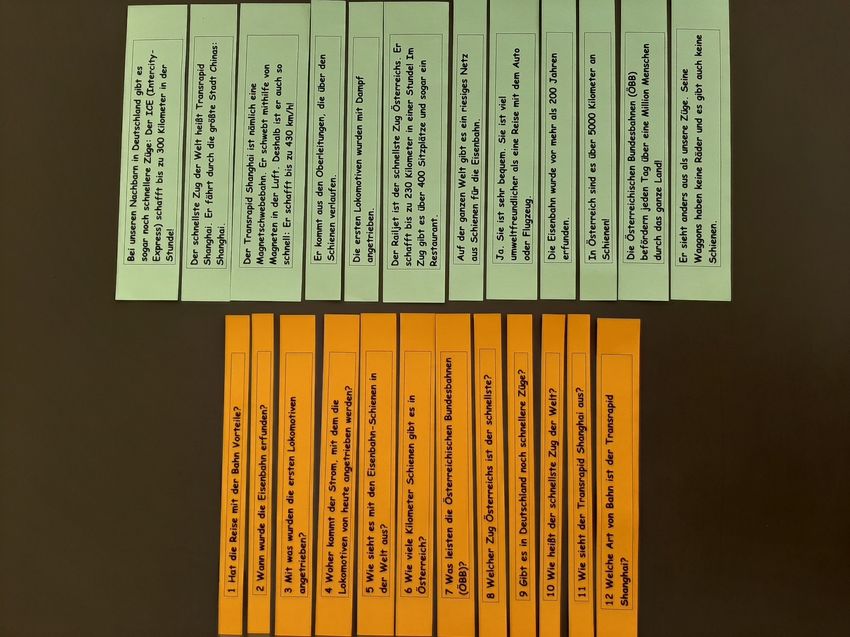 Bei unseren Nachbarn in Deutschland gibt es
sogar noch schnellere Züge: Der ICE (Intercity-
Express) schafft bis zu 300 Kilometer in der
Stunde!
Der schnellste Zug der Welt heißt Transrapid
Shanghai. Er fährt durch die größte Stadt Chinas:
Shanghai.
Der Transrapid Shanghai ist nämlich eine
Magnetschwebebahn. Er schwebt mithilfe von
Magneten in der Luft. Deshalb ist er auch so
schnell: Er schafft bis zu 430 km/h!
Er kommt aus den Oberleitungen, die über den
Schienen verlaufen.
Die ersten Lokomotiven wurden mit Dampf
angetrieben.
Der Railjet ist der schnellste Zug Österreichs. Er
schafft bis zu 230 Kilometer in einer Stunde! Im
Zug gibt es über 400 Sitzplätze und sogar ein
Restaurant.
Auf der ganzen Welt gibt es ein riesiges Netz
aus Schienen für die Eisenbahn.
Ja. Sie ist sehr bequem. Sie ist viel
umweltfreundlicher als eine Reise mit dem Auto
oder Flugzeug.
Die Eisenbahn wurde vor mehr als 200 Jahren
erfunden.
In Österreich sind es über 5000 Kilometer an
Schienen!
Die Österreichischen Bundesbahnen (ÖBB)
befördern jeden Tag über eine Million Menschen
durch das ganze Land!
Er sieht anders aus als unsere Züge. Seine
Waggons haben keine Räder und es gibt auch keine
Schienen.
1 Hat die Reise mit der Bahn Vorteile?
2 Wann wurde die Eisenbahn erfunden?
3 Mit was wurden die ersten Lokomotiven
angetrieben?
4 Woher kommt der Strom, mit dem die
Lokomotiven von heute angetrieben werden?
5 Wie sieht es mit den Eisenbahn-Schienen in
der Welt aus?
6 Wie viele Kilometer Schienen gibt es in
Österreich?
7 Was leisten die Österreichischen Bundesbahnen
(ÖBB)?
8 Welcher Zug Österreichs ist der schnellste?
9 Gibt es in Deutschland noch schnellere Züge?
10 Wie heißt der schnellste Zug der Welt?
11 Wie sieht der Transrapid Shanghai aus?
12 Welche Art von Bahn ist der Transrapid
Shanghai?